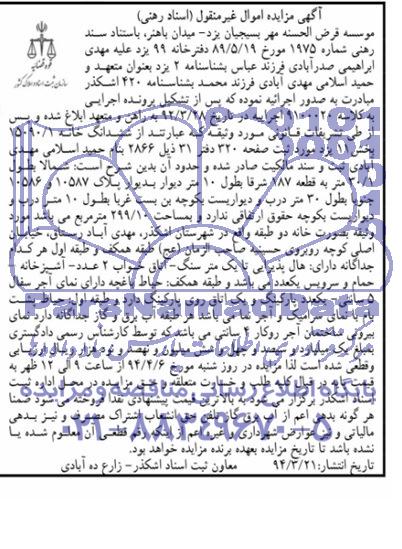 آگهی مزایده اموال غیرمنقول (اسناد رهنی)
موسسه قرض الحسنه مهر بسیجیان یزد- میدان باهنر، باستناد سند
رهنی شماره ۱۹۷۵ مورخ ۸۹/۵/۱۹ دفترخانه ۹۹ یزد علیه مهدی
ابراهیمی صدرآبادی فرزند عباس بشناسنامه ۲ یزد بعنوان متعهد و
حمید اسلامی مهدی آبادی فرزند محمد بشناسنامه ۴۲۰ اشکذر
مبادرت به صدور اجرائیه نموده که پس از تشکیل پرونده اجرایی
به کلاسه اجرائیه در تاریخ ۹۲/۳/۲۸ به راهن و متعهد ابلاغ شده و پس
از طی تشریفات قانونی مورد وثیقه که عبارتند از ششدانگ خانه ۱۵۰۹۰/۱
بخش ۱۱ یزد مورد ثبت صفحه ۳۲۰ دفتر ۳۱ ذیل ۲۸۶۶ بنام حمید اسلامی مهدی
آبادی ثبت و سند مالکیت صادر شده و حدود آن بدین شرح است: شمالا بطول
متر به قطعه ۱۸۷ شرقا بطول ۱۰ متر دیوار بدیوار پلاک ۱۰۵۸۷ و ۱۰۵۸۶
جنوبا بطول ۳۰ متر درب و دیواریست بکوچه بن بست غربا بطول ۱۰ متر درب و
دیواریست بکوچه حقوق ارتفاقی ندارد و بمساحت ۲۹۹/۱۰ مترمربع می باشد مورد
وثیقه بصورت خانه دو طبقه واقع در شهرستان اشکذر، مهدی آباد رستاق، خیابان
اصلی کوچه روبروی حسینیه صاحب الزمان (عج) طبقه همکف و طبقه اول هر کدام
جداگانه دارای: هال پذیرایی تا یک متر سنگ- اتاق خواب ۲ عدد- آشپزخانه
حمام و سرویس یکعدد می باشد و طبقه همکف: حیاط باغچه دارای نمای آجر سفال
بیرونی ساختمان آجر روکار ۴ سانتی می باشد که توسط کارشناس رسمی دادگستری
بمبلغ یک میلیارد و سیصد و چهل و شش میلیون و نهصد و نود هزار ریال ارزیابی
وقطعی شده است لذا مزایده در روز شنبه مورخ ۹۴/۴/۶ از ساعت ۹ الی ۱۲ ظهر به
اسناد اشکذر برگزار می شود به بالاترین قیمت پیشنهادی نقدا فروخته می شود ضمنا
هر گونه بدهی اعم از آب برق گاز تلفن حق انشعاب اشتراک مصرف و نیز بدهی
مالیاتی و نیز عوارض شهرداری و غیره اعم از اینکه رقم قطعی آن معلوم شده یا
نشده باشد تا تاریخ مزایده بعهده برنده مزایده خواهد بود.
تاریخ انتشار: ۹۴/۳/۲۱
معاون ثبت اسناد اشکذر- زارع ده آبادی
پایگاه اطلاع رسانی مناقصه و مزایده
۰۲۱-۸۸۳۴۹۶۷۰-۵